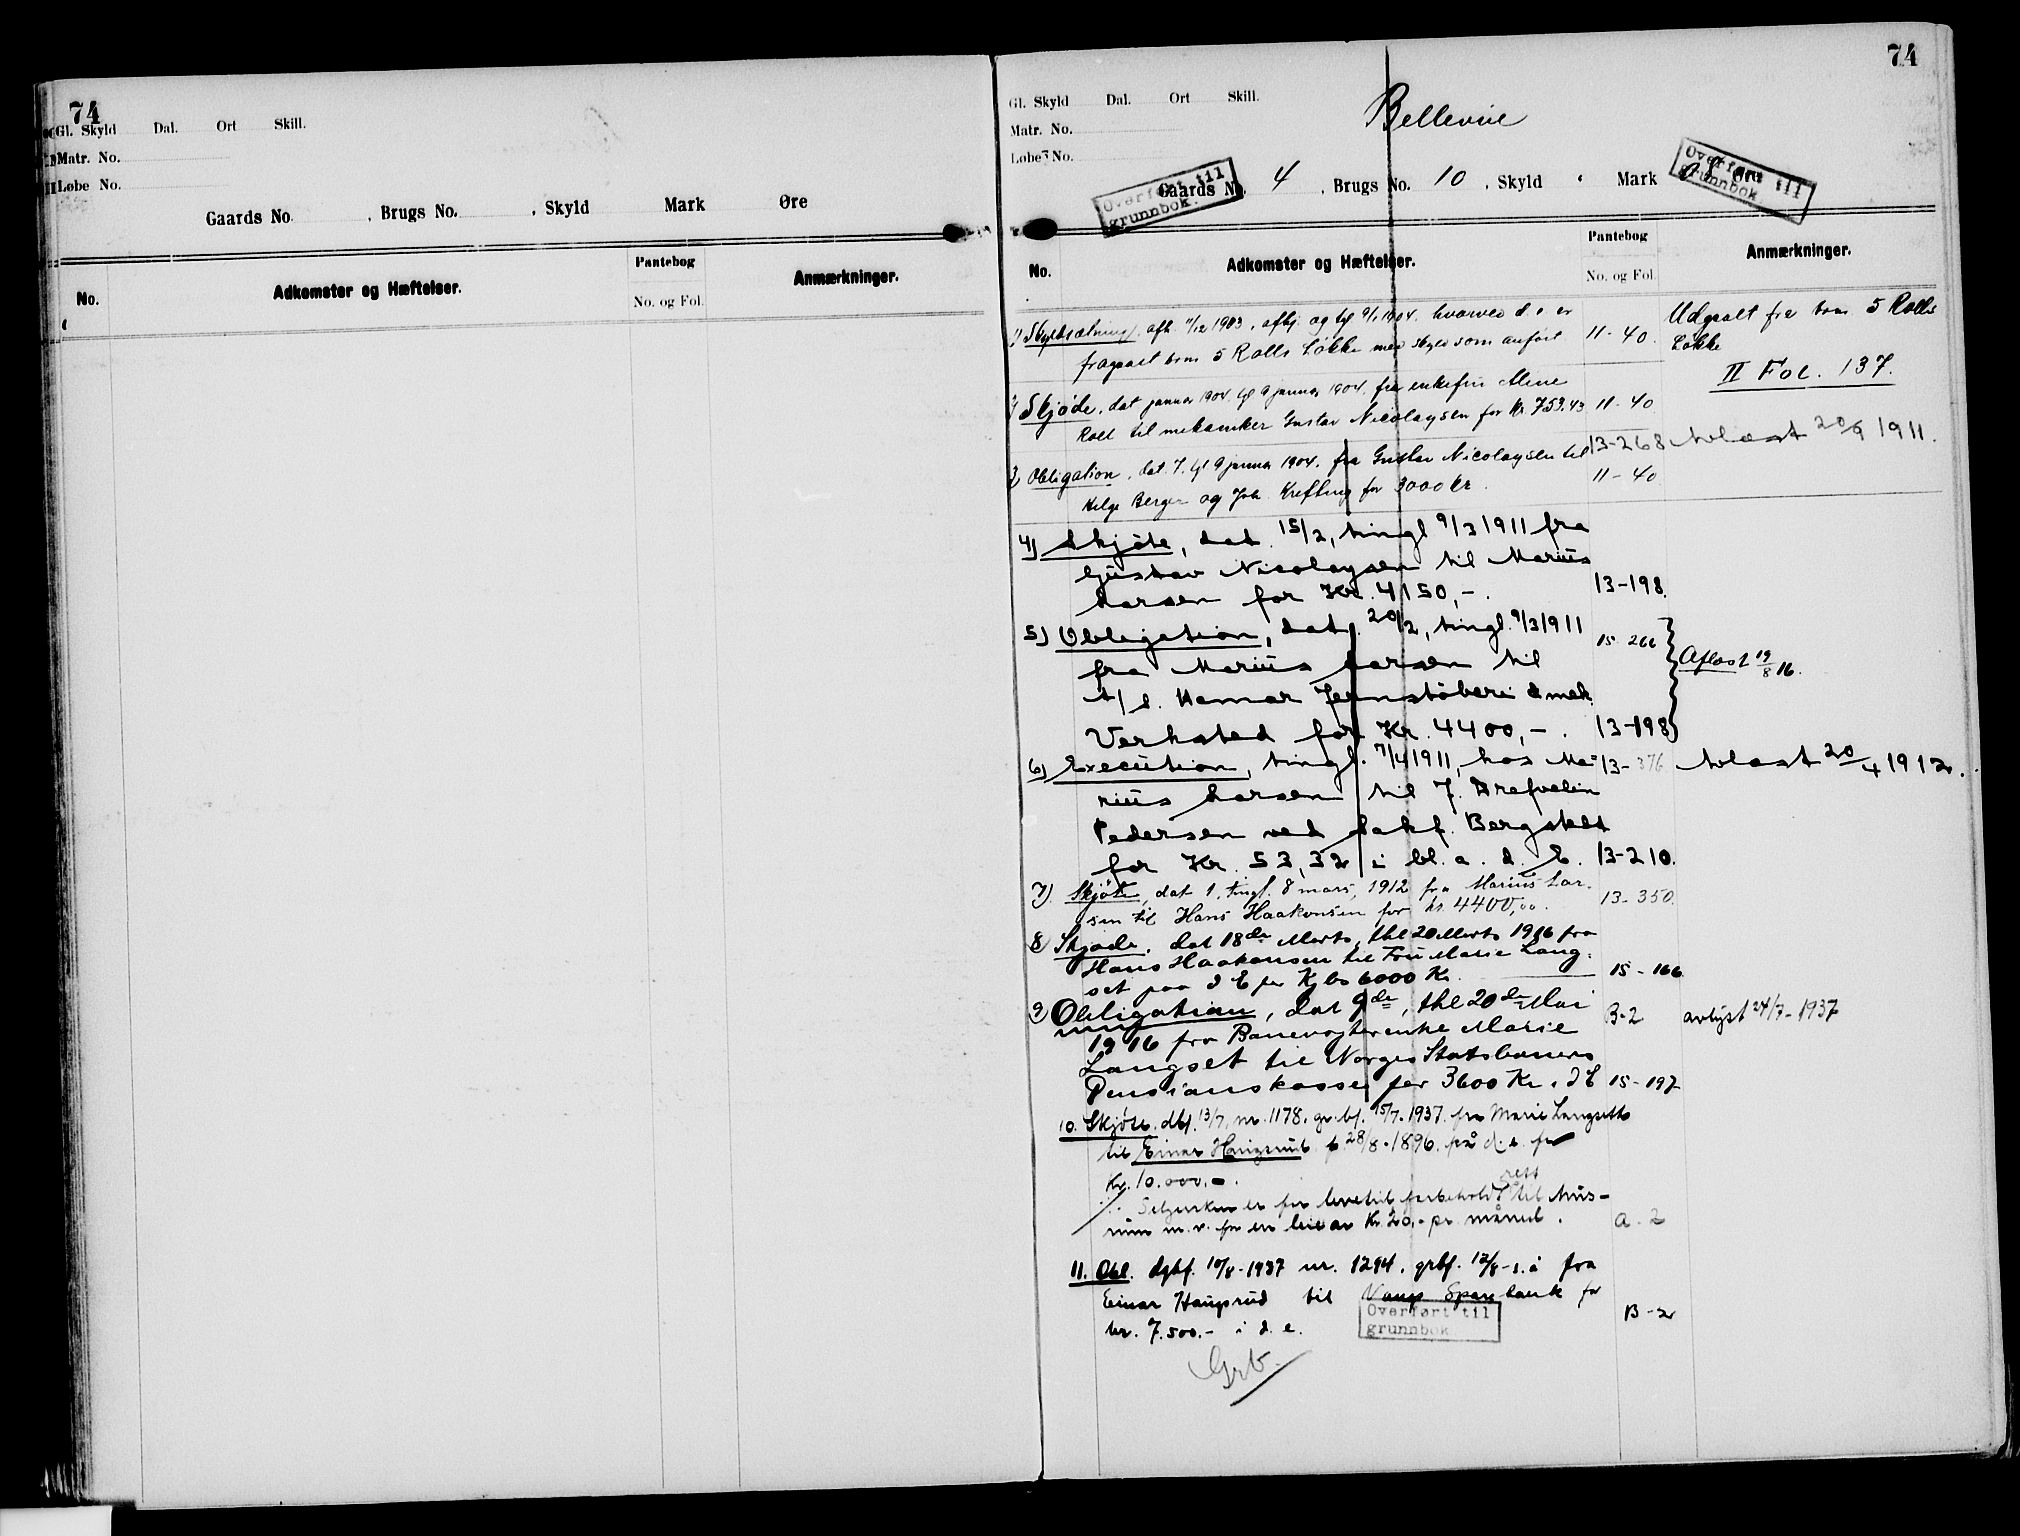 74
Gl. Skyld Dal. Ort Skill.
Matr. No.
Løbe No.
Gaards No. , Brugs No. , Skyld Mark Øre
No. Adkomster og Hæftelser. Pantebog No. og Fol. Anmærkninger.
74
Gl. Skyld Dal. Ort Skill.
Matr. No.
Løbe No.
Bellevue
Gaards No. 4 , Brugs No. 10 , Skyld Mark Øre
Overført til
grunnbok.
Overført til
grunnbok
No. Adkomster og Hæftelser. Pantebog No. og Fol. Anmærkninger.
1) Skyldsætning, afh. 1903, afhj. og tgl 9/1 1904. hvorved d. e. er
fragaaet brn 5 Rolls Løkke med skyld som anført 11-40.
Udgaaet fra brn 5 Rolls
Løkke
II Fol. 137.
2) Skjøde, dat januar 1904, tgl 9 januar 1904, fra enkefru Aline
Roll til mekaniker Gustav Nicolaysen for kr 753.43 11-40
3) Obligation, dat. 7. tgl 9 januar 1904. fra Gustav Nicolaysen til 13-268 Avlæst 20/9 1911.
Helge Berger og Joh. Krefting for 3000 kr. 11-40
4) Skjøte, dat. 15/2, tingl 9/3 1911 fra
Gustav Nicolaysen til Marius
Larsen for Kr. 4150,-. 13-198.
5) Obligation, dat. 20/2, tingl. 9/3 1911 15-266
fra Marius Larsen til Aflæst 19/8 16.
A/S. Hamar Jernstøberi & mek.
Verksted for Kr. 4400,-. 13-198
6) Execution, tingl. 7/4 1911, hos Ma= 13-376 Avlæst 20/4 1912.
rius Larsen til J. Arefvelin
Pedersen ved Sakf. Bergstedt
for Kr. 53,32 i bl. a. d. E. 13-210.
7) Skjøte, dat 1, tingl. 8 mars, 1912 fra Marius Lar-
sen til Hans Haakonsen for kr. 4400,00. 13-350.
8) Skjøde. dat 18de Marts, thl 20 Marts 1916 fra
Hans Haakonsen til Fru Marie Lang-
set paa d E for Kjbs 6000 Kr. 15-166
9) Obligation, dat 9de, thl 20de Mai B-2 avlyst 24/7-1937
1916 fra Banevogterenke Marie
Langset til Norges Statsbaners
Pensionskasse for 3600 Kr. i d E 15-197
10. Skjøte. dbf. 13/7, nr. 1178, gr.bf. 15/7. 1937. fra Marie Langseth
til Einar Haugsrud f. 28/8.1896. på d. e. for
Kr. 10.000.-.
Selgersken er for levetid forbeholdt rett til hus-
rum m. v. for en leie av Kr. 20,- pr. måned. A-2
11. Obl. dgbf. 10/8-1937 nr. 1294, grbf. 12/8-s.å fra
Einar Haugsrud til Vangs Sparebank for
kr. 7.500.- i d. e. B-2
Overført til
grunnbok
Grb.